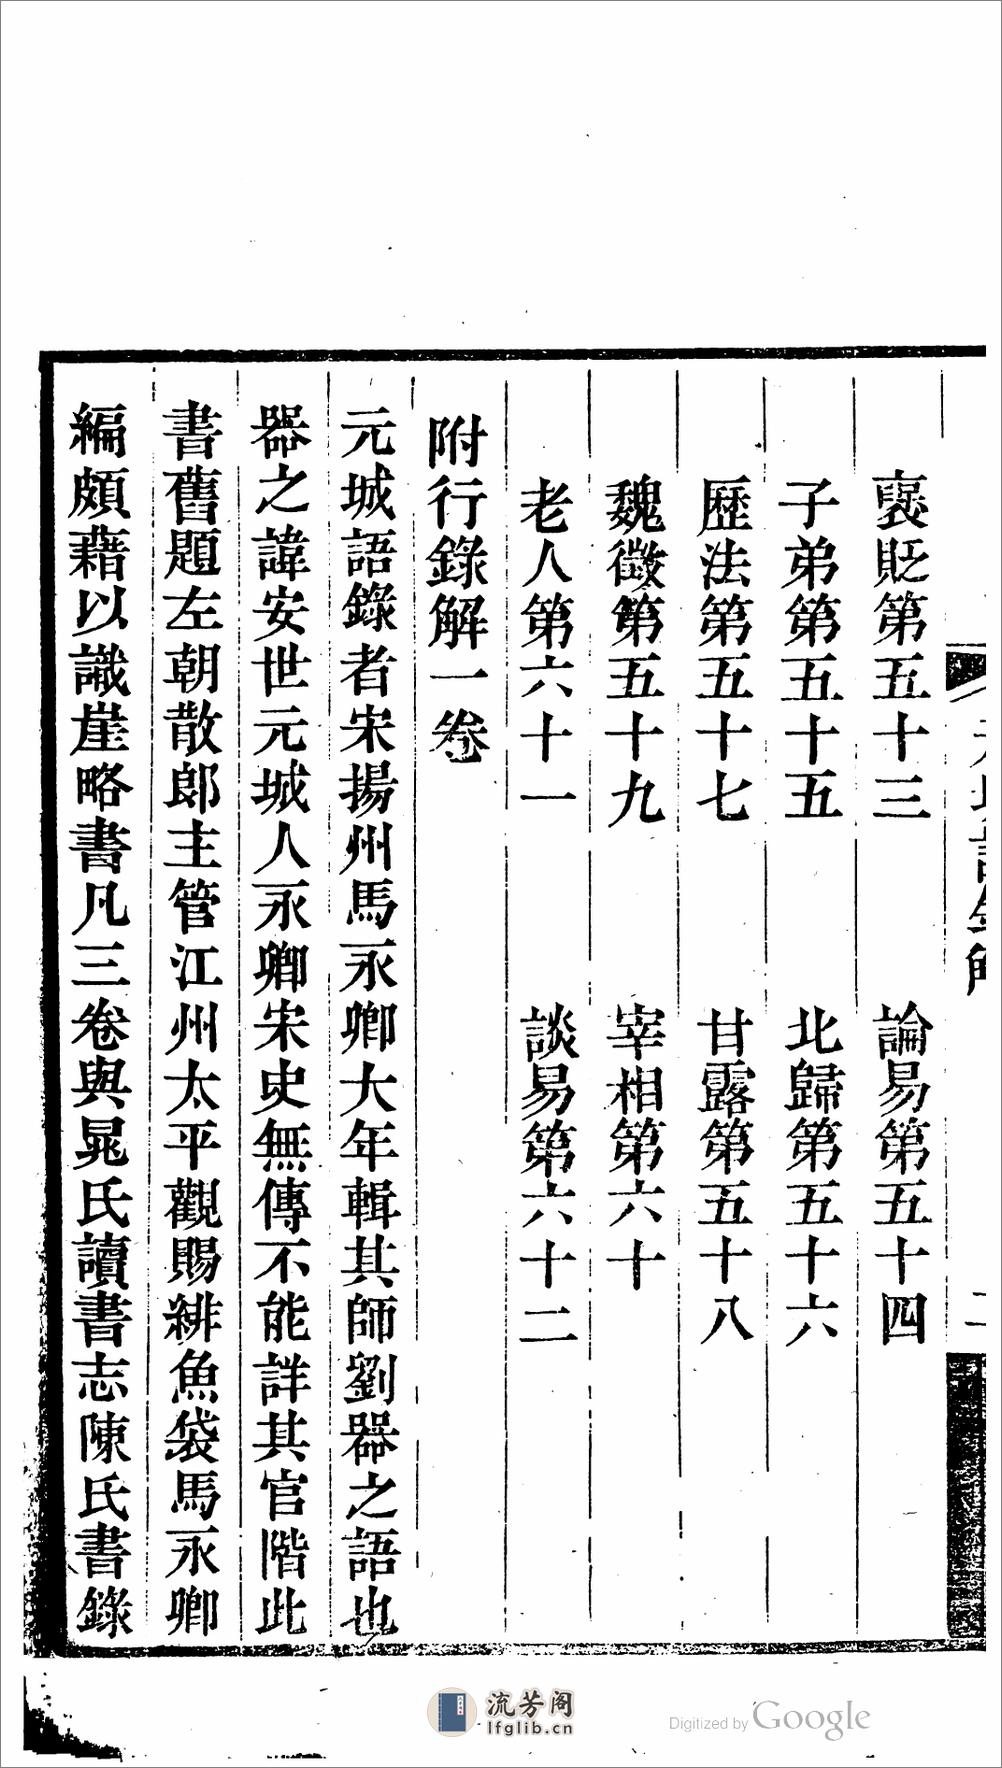 襃貶第五十三　論易第五十四
子弟第五十五　北歸第五十六
歷法第五十七　甘露第五十八
魏徵第五十九　宰相第六十
老人第六十一　談易第六十二
附行錄解一卷
元城語錄者宋揚州馬永卿大年輯其師劉器之語也
器之諱安世元城人永卿宋史無傳不能詳其官階此
書舊題左朝散郎主管江州太平觀賜緋魚袋馬永卿
編頗藉以識崖略書凡三卷與晁氏讀書志陳氏書錄
流芳阁
lfglib.cn
Digitized by Google